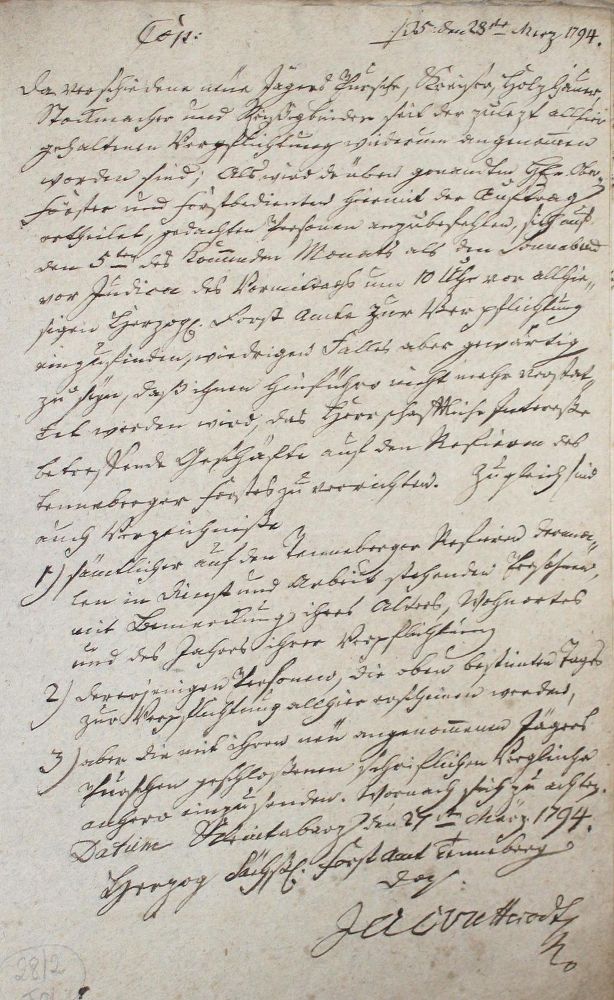 Cop:
ps: den 28ste Merz 1794.
Da verschiedene neue Jägers Pursche, Kreyser, Holzhauer
Stockmacher und Reißigbinder seit der zulezt allhier
gehaltenen Verpflichtung wiederum angenommen
worden sind; Als wird denen oben genandten Ober„
Förster und Forstbedienten hiermit der Auftrag
ertheilet, gedachten Personen anzubefehlen, sich auf
den 5ten des kommenden Monats als den Sonnabend
vor Judica des Vormittags um 10 Uhr vor allhie„
sigen Herzogl. Forst Amte zur Verpflichtung
einzufinden, wiedrigen Falles aber gewärtig
zu seyn, daß ihnen hinführo nicht mehr verstat„
tet werden wird, das Herrschafftliche Interesse
betreffende Geschäfte auf den Refieren des
Tenneberger Forstes zu verrichten. Zugleich sind
auch Verzeichniße
1) sämtlicher auf den Tenneberger Refieren derma„
len in Dienst und Arbeit stehenden Persohnen,
mit Bemerckung, ihres Alters, Wohnortes
und des Jahres ihrer Verpflichtung
2) dererjenigen Personen, die oben bestimten Tages
zur Verpflichtung allhier erscheinen werden,
3) aber die mit ihren neu angenommenen Jägers
Purschen geschloßenen schriftlichen Vergleiche
anhero einzusenden. Wornach sich zu achten.
Datum den 27ten März 1794.
Herzog Sächßl. Forst Amt Tenneberg
das.
2812